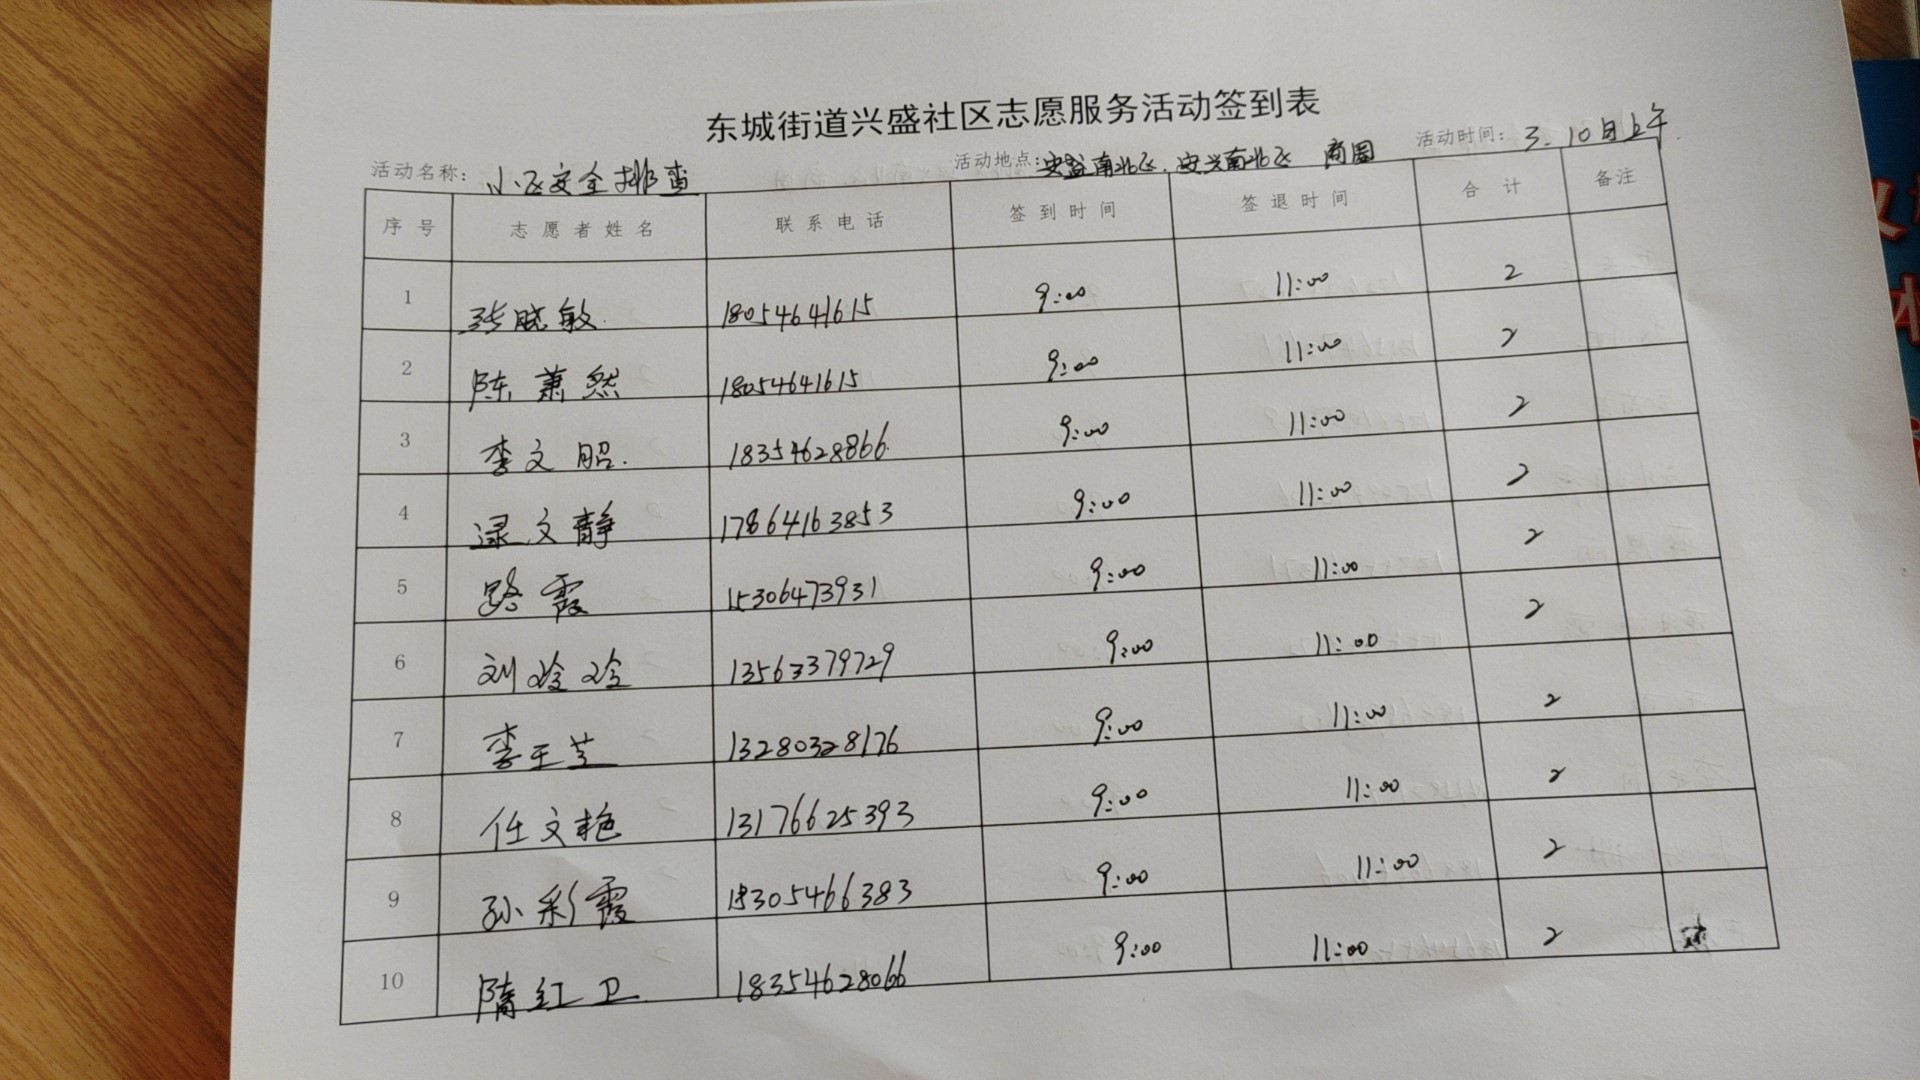 东城街道兴盛社区志愿服务活动签到表
活动名称: 小区安全排查 活动地点: 安盛南北区、安兴南北区 商圈 活动时间: 3.10日上午
序号 志愿者姓名 联系电话 签到时间 签退时间 合计 备注
1 张晓敏 18054641615 9:00 11:00 2
2 陈萧然 18054641615 9:00 11:00 2
3 李文昭. 18354628866 9:00 11:00 2
4 逯文静 17864163853 9:00 11:00 2
5 路霞 15306473931 9:00 11:00 2
6 刘玲玲 13563379729 9:00 11:00 2
7 李玉芝 13280328176 9:00 11:00 2
8 任文艳 13176625393 9:00 11:00 2
9 孙彩霞 15305466383 9:00 11:00 2
10 隋红卫 18354628066 9:00 11:00 2